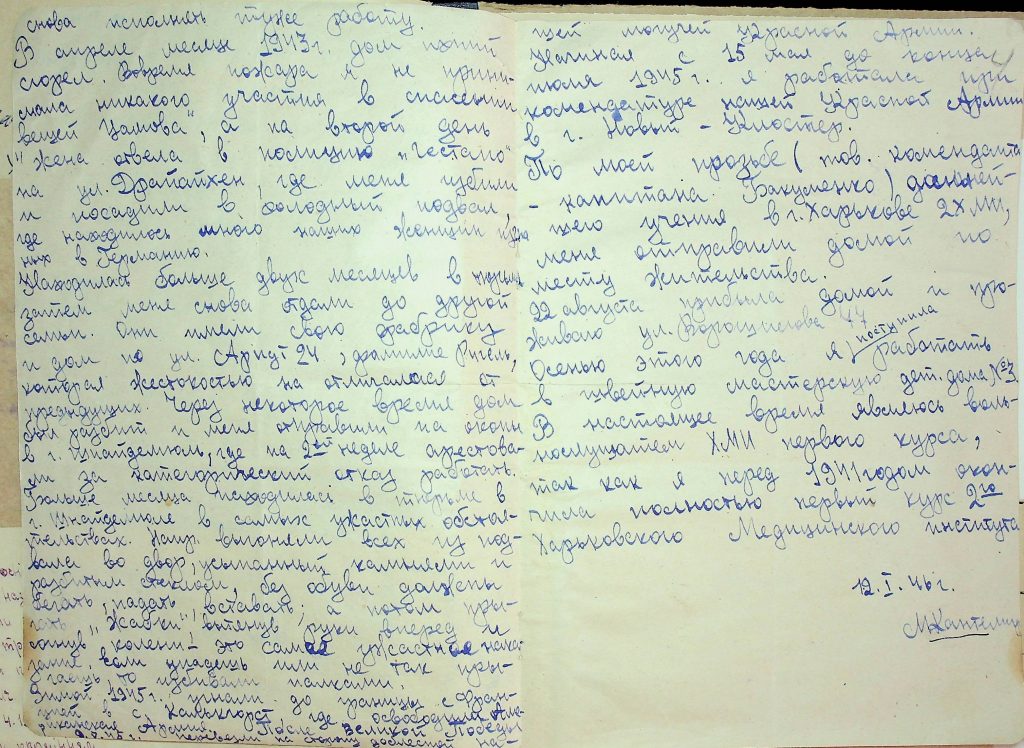 снова исполнять ту же работу.
В апреле месяце 1943 г. дом
сгорел. Вовремя пожара я не прини-
мала никакого участия в спасении
вещей "Цамова", а на второй день
жена отвела в полицию "Гестапо"
на ул. Драйайхен, где меня избили
и посадили в холодный подвал,
где находилось много наших женщин
ных в Германию.
Находилась больше двух месяцев в
затем меня снова отдали до другой
семьи. Они имели свою фабрику
и дом по ул. Арндт 24, фамилие Ругель,
которая жестокостью не отличалась от
предыдущих. Через некоторое время дом
был разбит и меня отправили на окопы
в г. Шнайдемюль, где на 2ой неделе арестова-
ли за категорический отказ работать.
Больше месяца находилась в тюрьме в
г. Шнайдемюле в самых ужастных обстоя-
тельствах. Напр. выгоняли всех из под-
вала во двор, усыпанный камнями и
разбитым стеклом, без обуви должены
бегать, падать, вставать; а потом пры-
гать "жабки" вытянув руки вперёд и
согнув колени! это самое ужастное нака-
зание, если упадешь или не так пры-
гаешь, то избивали палками.
Зимой 1945 г. угнали до границы с Фран-
цией в с. Калькгорст где освободила Аме-
риканская Армия. После Великой Победы
9.V.45 г. перевезли на сторону доблестной на-
шей могучей Красной Армии.
Начиная с 15 мая до конца
июля 1945 г. я работала при
комендатуре нашей Красной Армии
в г. Новый - Клостер.
По моей прозьбе (тов. коменданта
- капитана Бакуменко) дальней-
шего учения в г. Харькове 2ХМИ,
меня отправили домой по
месту жительства.
22 августа прибыла домой и про-
живаю ул. Ворошилова 44
Осенью этого года я поступила работать
в швейную мастерскую дет. дома №3.
В настоящее время являюсь воль-
нослушателем ХМИ первого курса,
так как я перед 1941 годом окон-
чила полностью первый курс 2го
Харьковского Медицинского института
12.I.46 г.